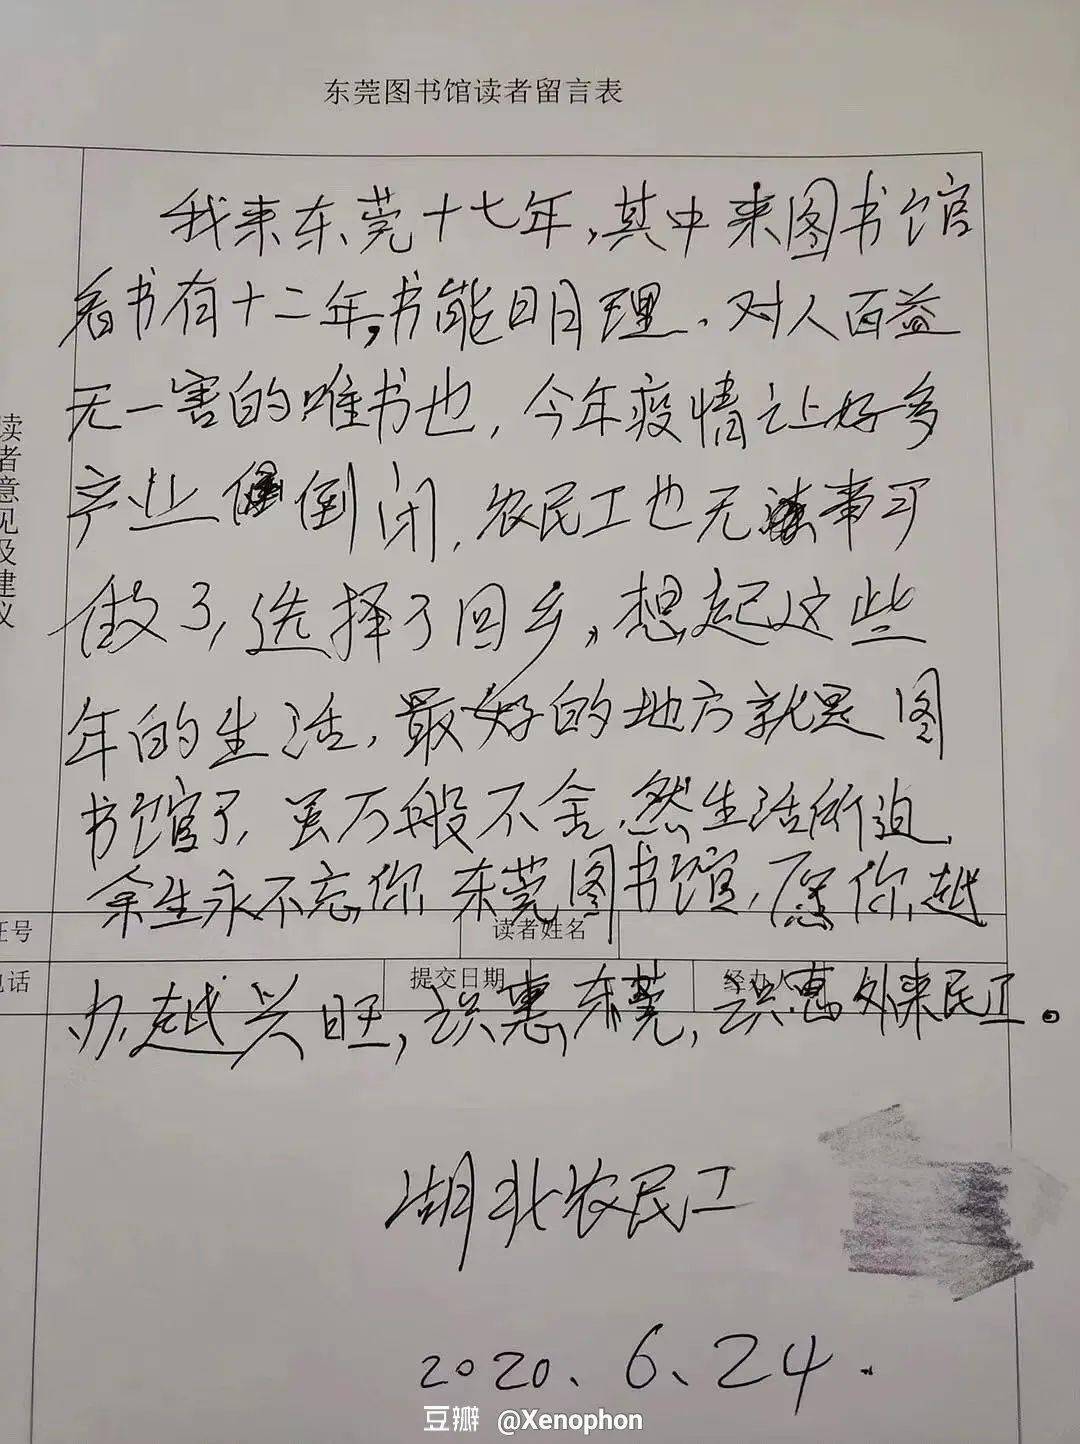 东莞图书馆读者留言表
我来东莞十七年,其中来图书馆
看书有十二年,书能明理、对人百益
无一害的唯书也,今年疫情让好多
产业倒闭,农民工也无事可
做了,选择了回乡,想起这些
年的生活,最好的地方就是图
书馆了,虽万般不舍,然生活所迫,
余生永不忘你,东莞图书馆,愿你越
办越兴旺,识惠东莞,识惠外来民工。
读者意见及建议
证号
读者姓名
电话
提交日期
经办人
湖北农民工
2020、6、24.
豆瓣 @Xenophon